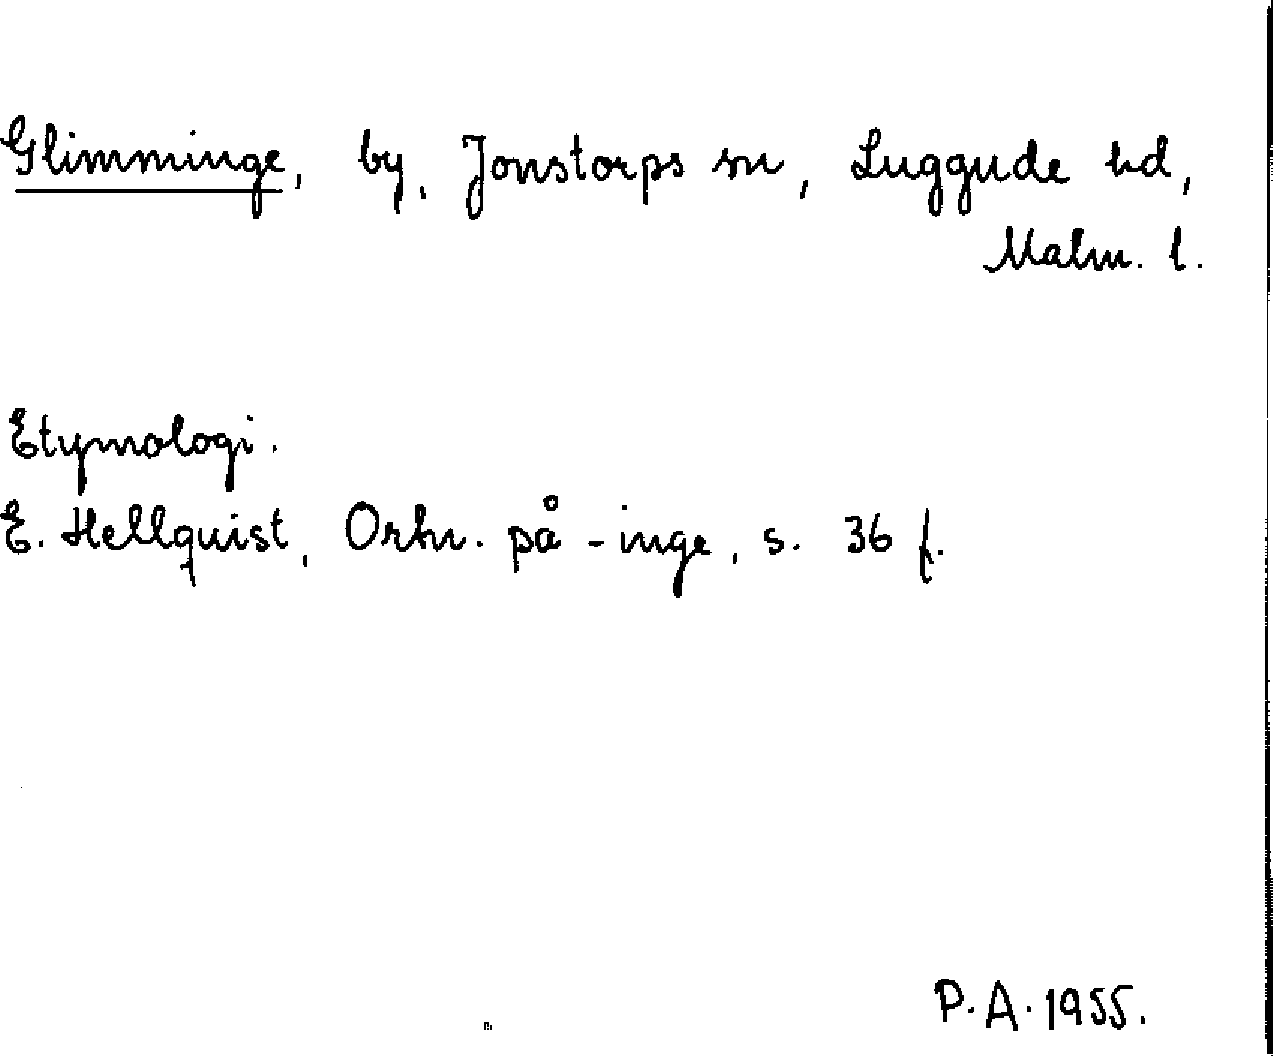 Glimminge, by, Jonstorps sn, Luggude hd,
Malm. l.
Etymologi.
E. Hellquist, Ortn. på -inge, s. 36 f.
P.A. 1955.